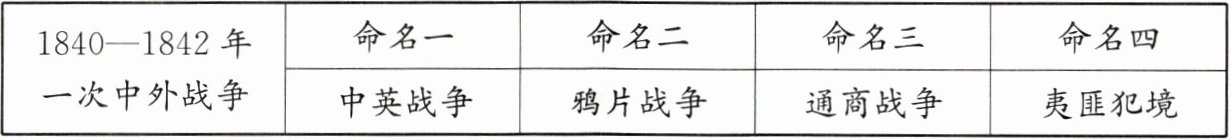 1840—1842 年
一次中外战争
命名一 命名二 命名三 命名四
中英战争 鸦片战争 通商战争 夷匪犯境